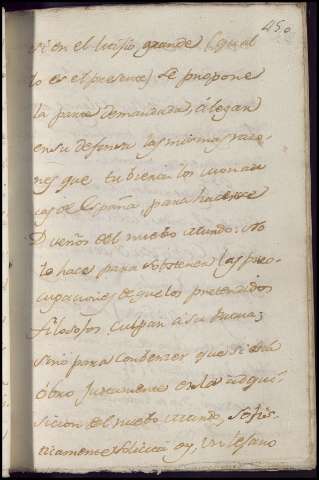 450
si en el litigio grande (qual
lo es el presente) se propone
la parte demandada, alegar
en su defensa las mismas razo-
nes que tubieron los monar
cas de España para hacerse
Dueños del nuebo mundo: No
lo hace para sobstener las preo-
cupaciones de que los pretendidos
filosofos culpan a su
sino para conbencer que si
obro justamente en la adqui-
sicion del nuebo mundo,
oy,